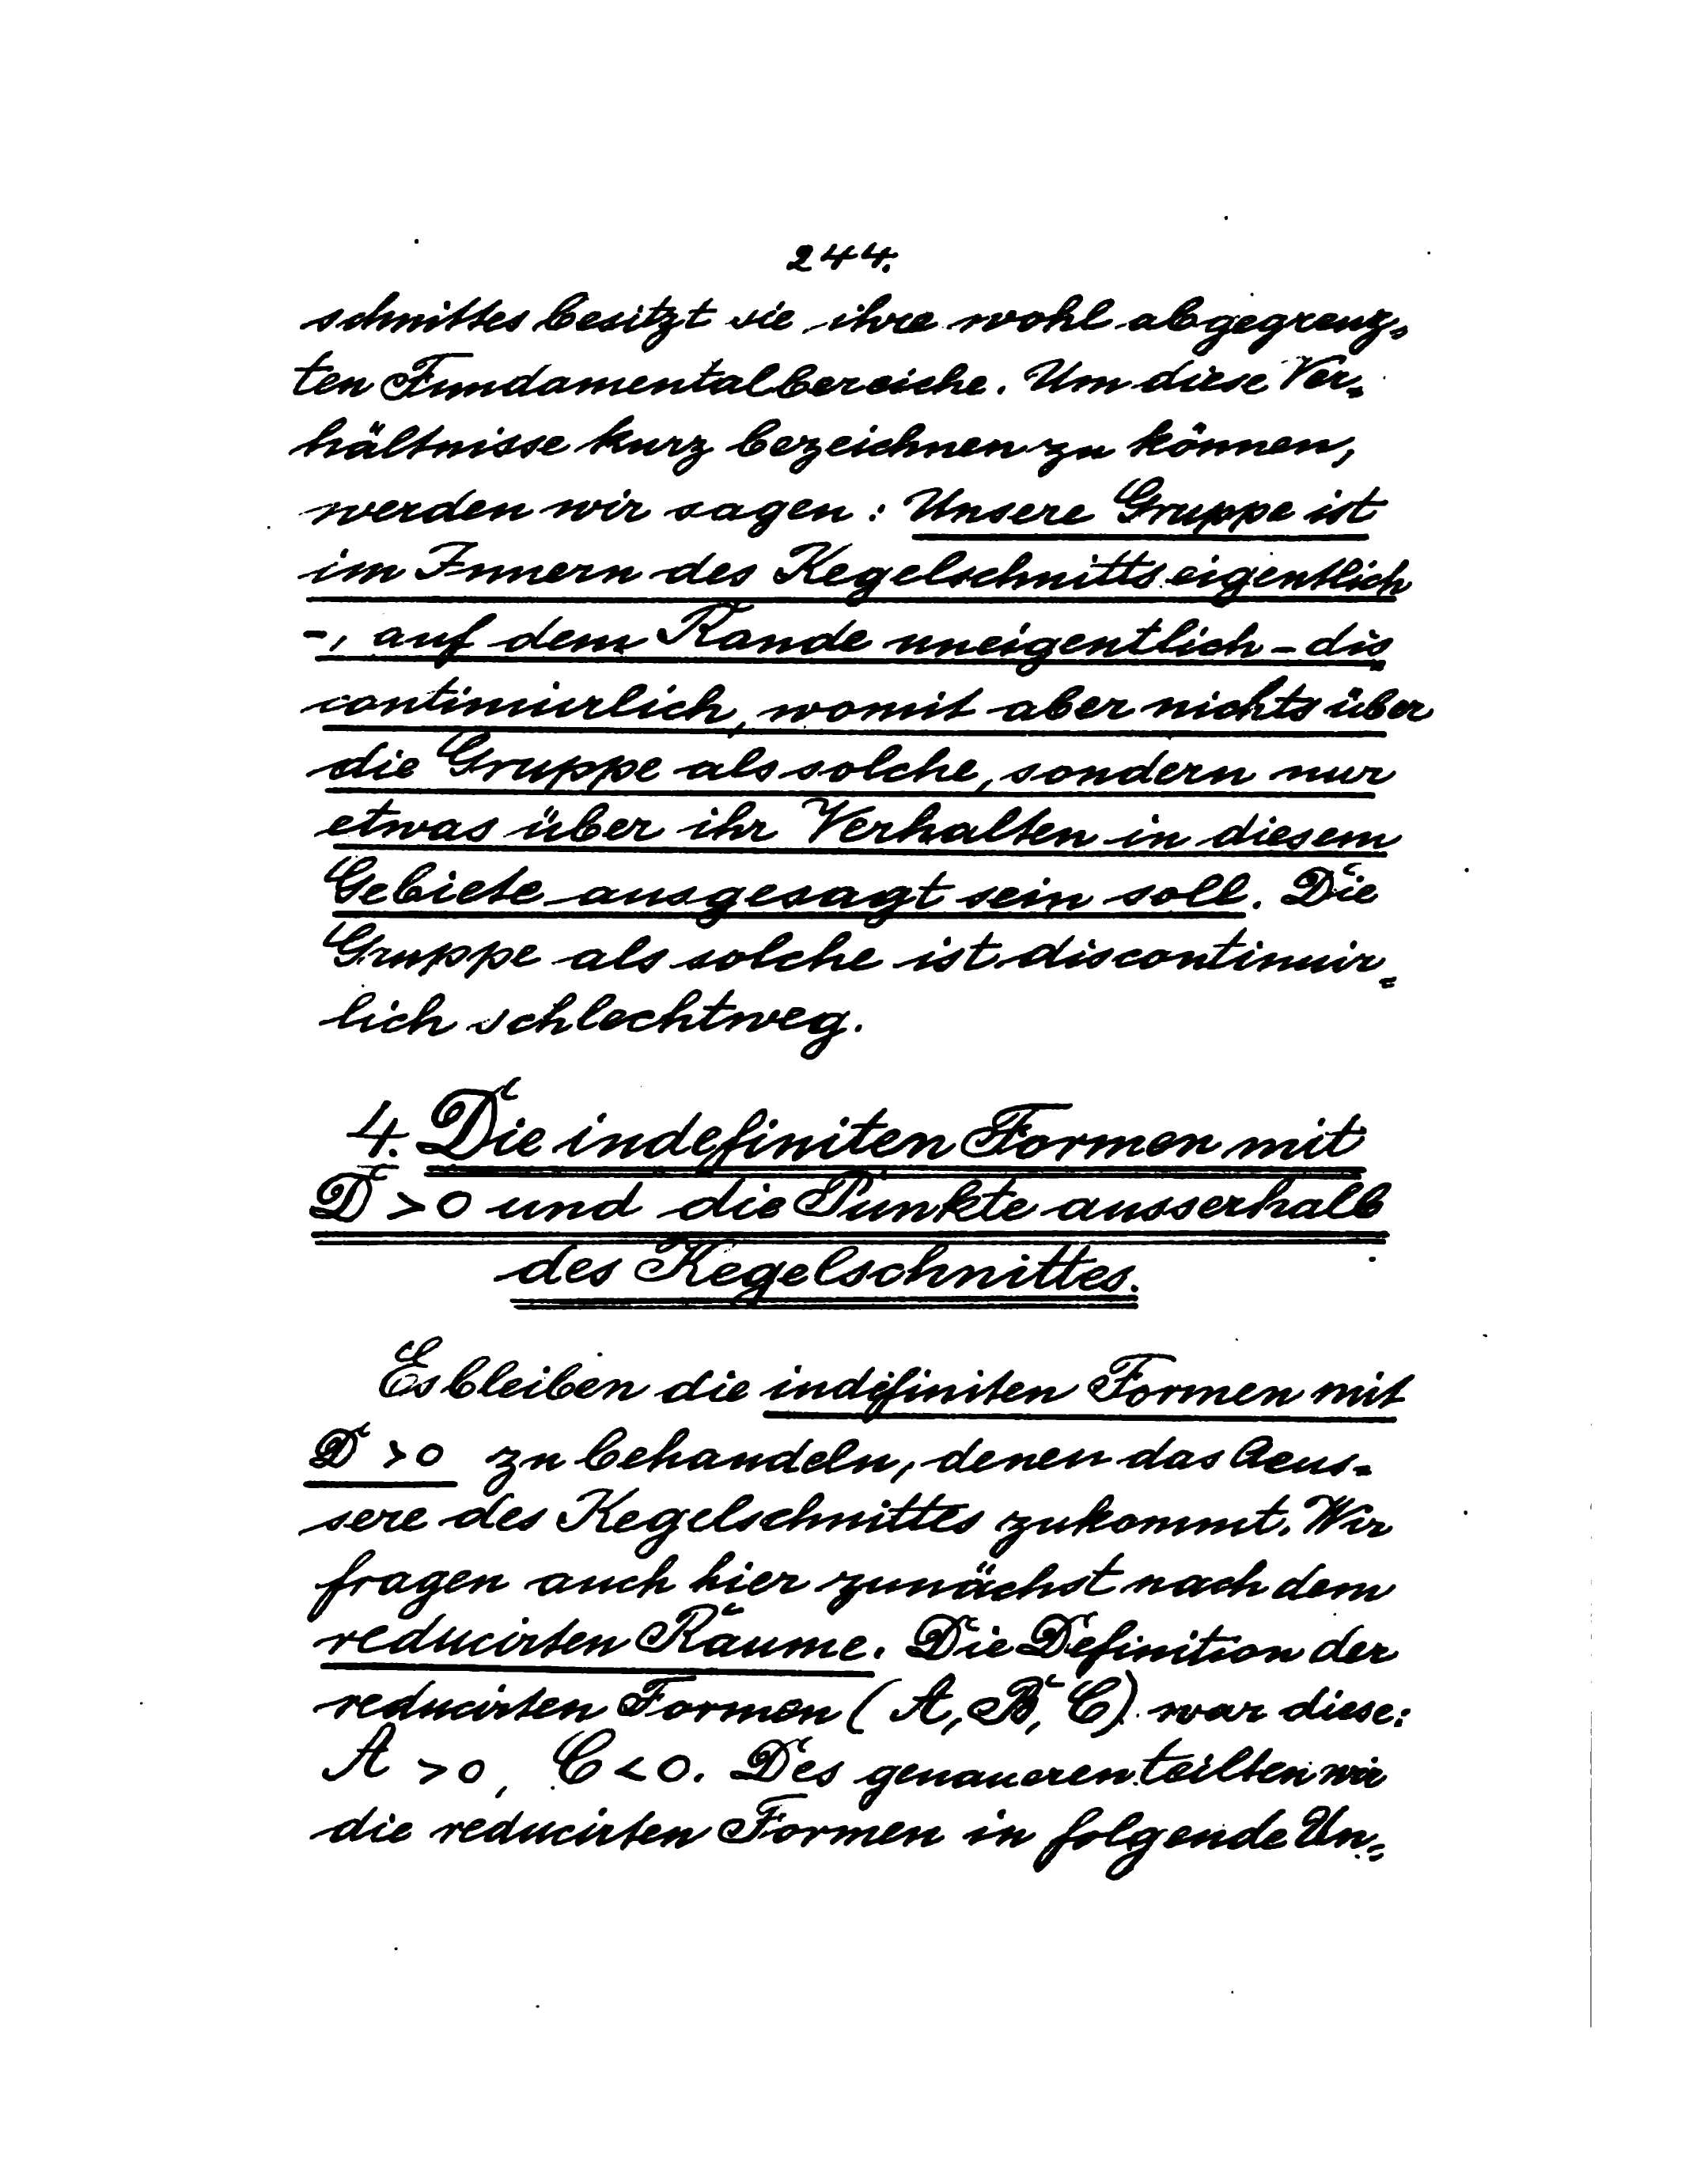 244.
schnittes besitzt sie ihre wohl abgegrenz-
ten Fundamentalbereiche. Um diese Ver-
hältnisse kurz bezeichnen zu können,
werden wir sagen: Unsere Gruppe ist
im Innern des Kegelschnitts eigentlich
-, auf dem Rande uneigentlich - dis
continuirlich, womit aber nichts über
die Gruppe als solche, sondern nur
etwas über ihr Verhalten in diesem
Gebiete ausgesagt sein soll. Die
Gruppe als solche ist discontinuir-
lich schlechtweg.
4. Die indefiniten Formen mit
D > 0 und die Punkte ausserhalb
des Kegelschnittes.
Es bleiben die indefiniten Formen mit
D > 0 zu behandeln, denen das Aeus-
sere des Kegelschnittes zukommt. Wir
fragen auch hier zunächst nach dem
reducirten Raume. Die Definition der
reducirten Formen (A, B, C) war diese:
A > 0, C < 0. Des genaueren teilten wir
die reducirten Formen in folgende Un-